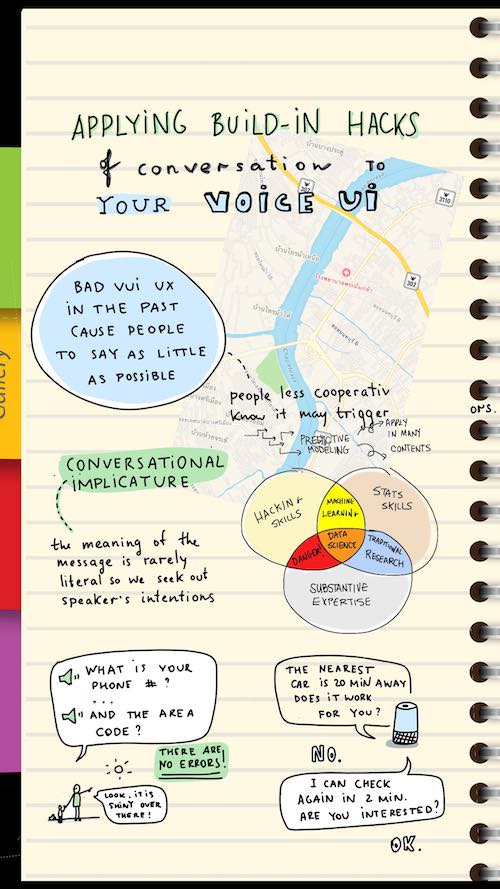 APPLYING BUILD-IN HACKS
of conversation TO
YOUR VOICE UI
302
3110
302
BAD VUI UX
IN THE PAST
CAUSE PEOPLE
TO SAY AS LITTLE
AS POSSIBLE
people less cooperativ
know it may trigger
PREDICTIVE
MODELING
APPLY
IN MANY
CONTENTS
CONVERSATIONAL
IMPLICATURE
the meaning of the
message is rarely
literal so we seek out
speaker's intentions
HACKING
SKILLS
MACHINE
LEARNING
STATS
SKILLS
DATA
SCIENCE
DANGER!
TRADITIONAL
RESEARCH
SUBSTANTIVE
EXPERTISE
WHAT IS YOUR
PHONE # ?
...
AND THE AREA
CODE ?
THERE ARE
NO ERRORS!
LOOK, IT IS
SHINY OVER
THERE!
THE NEAREST
CAR IS 20 MIN AWAY
DOES IT WORK
FOR YOU?
NO.
I CAN CHECK
AGAIN IN 2 MIN.
ARE YOU INTERESTED?
OK.